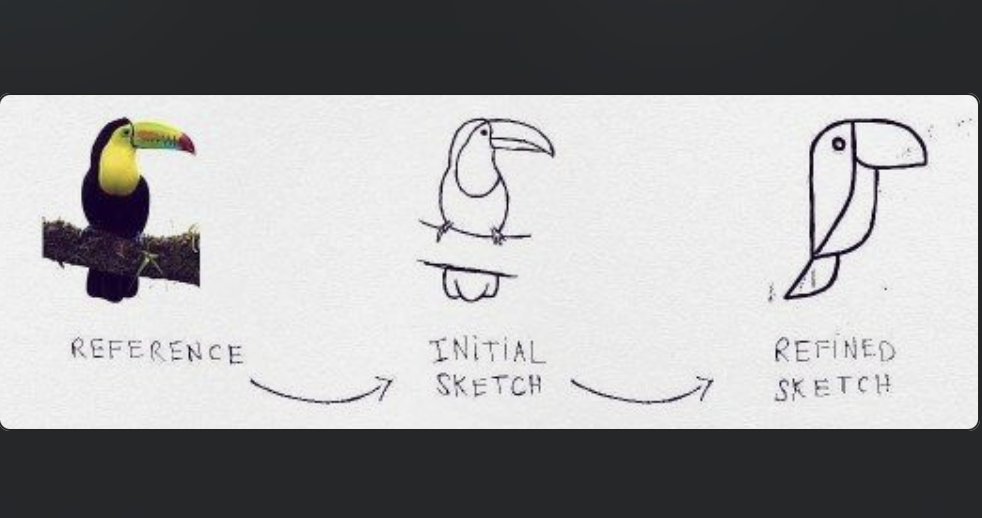 REFERENCE
INiTiAL
SKETCH
REFiNED
SKETCH